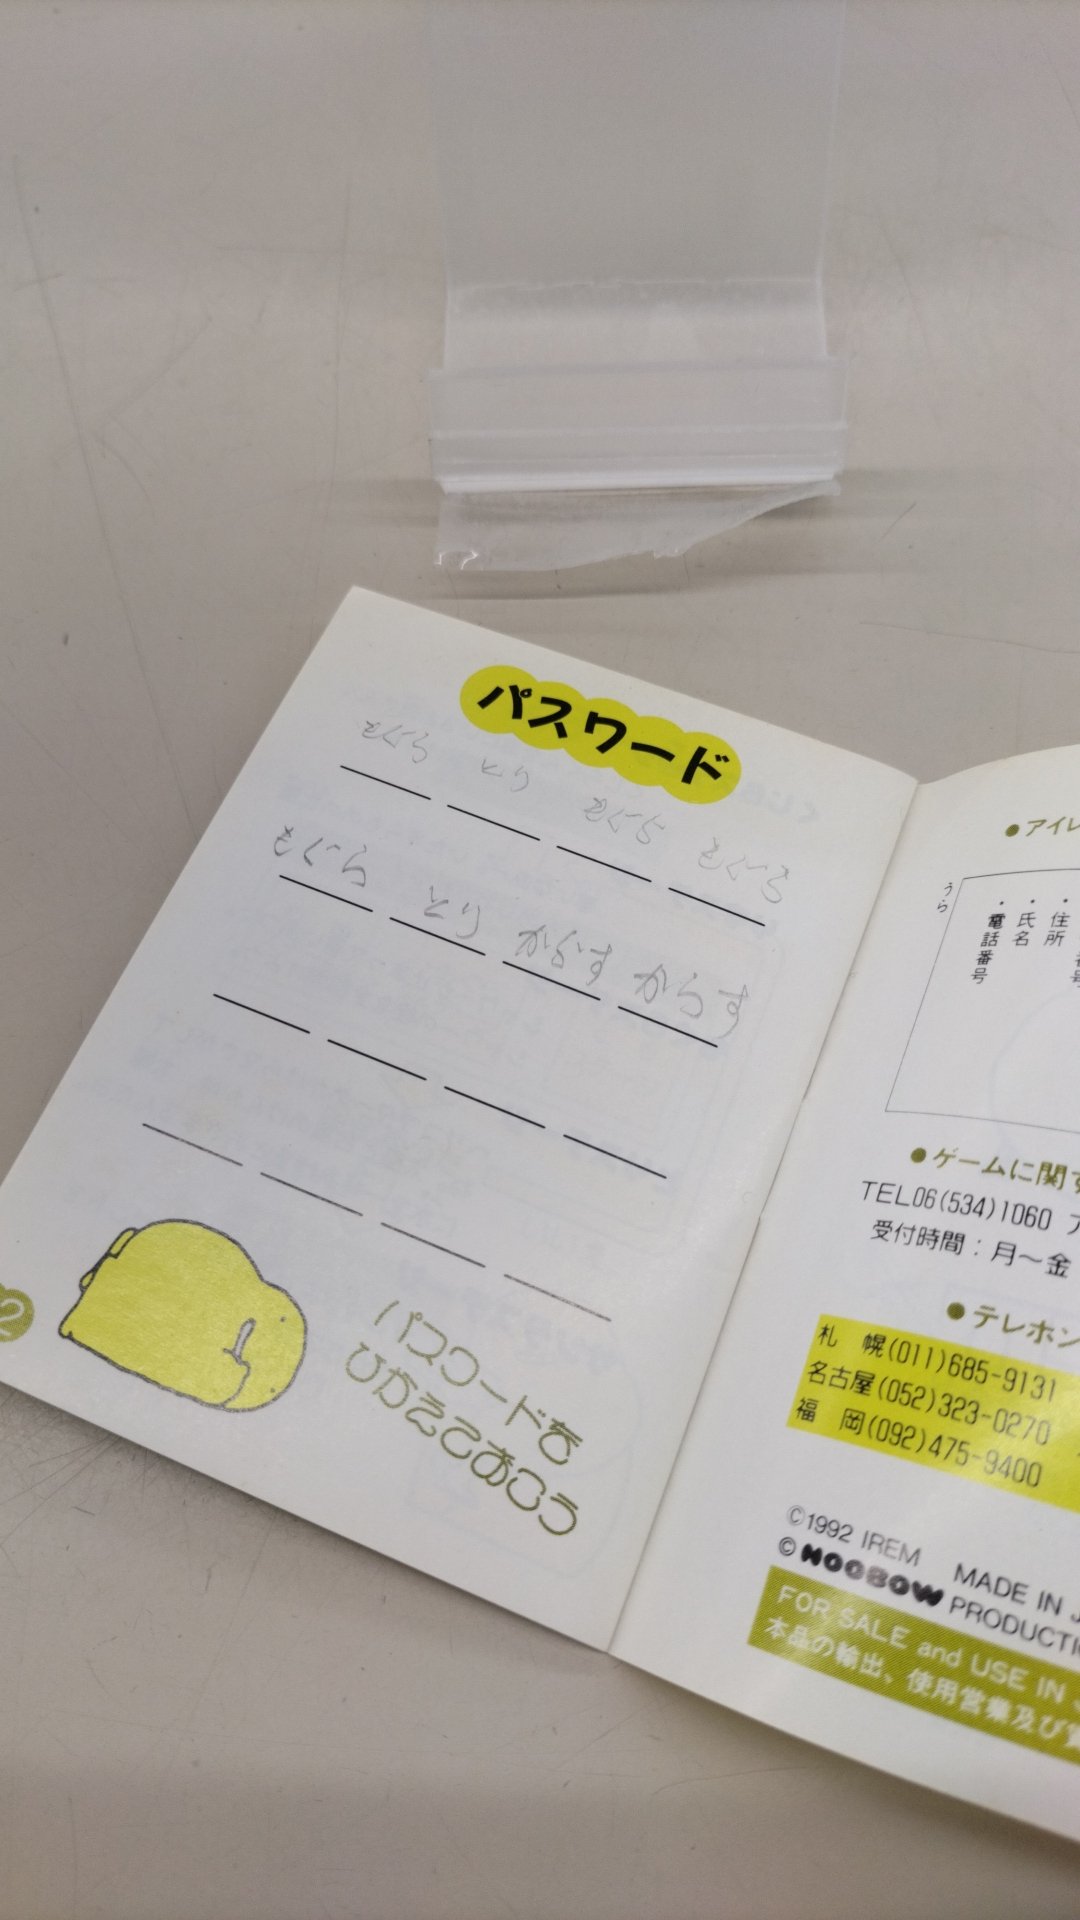 パスワード
もぐら とり もぐら もぐら
もぐら とり からす からす
パスワードを
ひかえておこう
2
●アイレ
うら
・住所
・氏名
・電話番号
●ゲームに関す
TEL06(534)1060
受付時間：月〜金
●テレホン
札　幌(011)685-9131
名古屋(052)323-0270
福　岡(092)475-9400
©1992 IREM MADE IN J
© NOOBOW PRODUCTI
FOR SALE and USE IN J
本品の輸出、使用営業及び賃